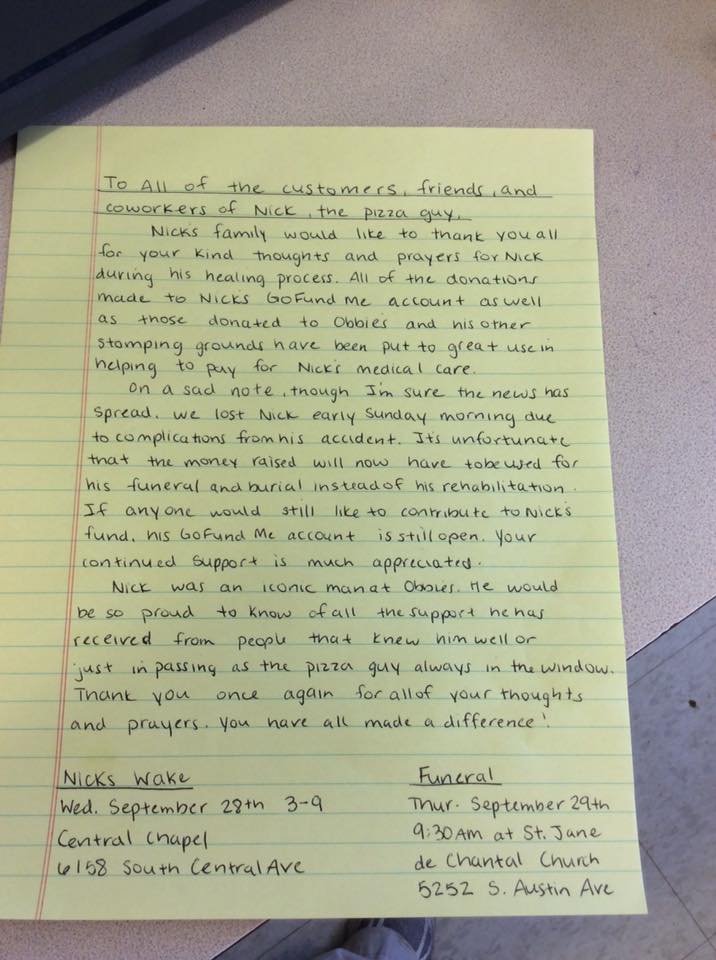 To All of the customers, friends, and
coworkers of Nick, the pizza guy,
Nicks family would like to thank you all
for your kind thoughts and prayers for Nick
during his healing process. All of the donations
made to Nicks GoFund Me account as well
as those donated to Obbies and his other
stomping grounds have been put to great use in
helping to pay for Nick's medical care.
On a sad note, though I'm sure the news has
spread, we lost Nick early Sunday morning due
to complications from his accident. It's unfortunate
that the money raised will now have to be used for
his funeral and burial instead of his rehabilitation.
If anyone would still like to contribute to Nick's
fund, his GoFund Me account is still open. Your
continued support is much appreciated.
Nick was an iconic man at Obbies. He would
be so proud to know of all the support he has
received from people that knew him well or
just in passing as the pizza guy always in the window.
Thank you once again for all of your thoughts
and prayers. You have all made a difference!
Nicks Wake
Wed. September 28th 3-9
Central Chapel
6158 South Central Ave
Funeral
Thur. September 29th
9:30 AM at St. Jane
de Chantal Church
5252 S. Austin Ave